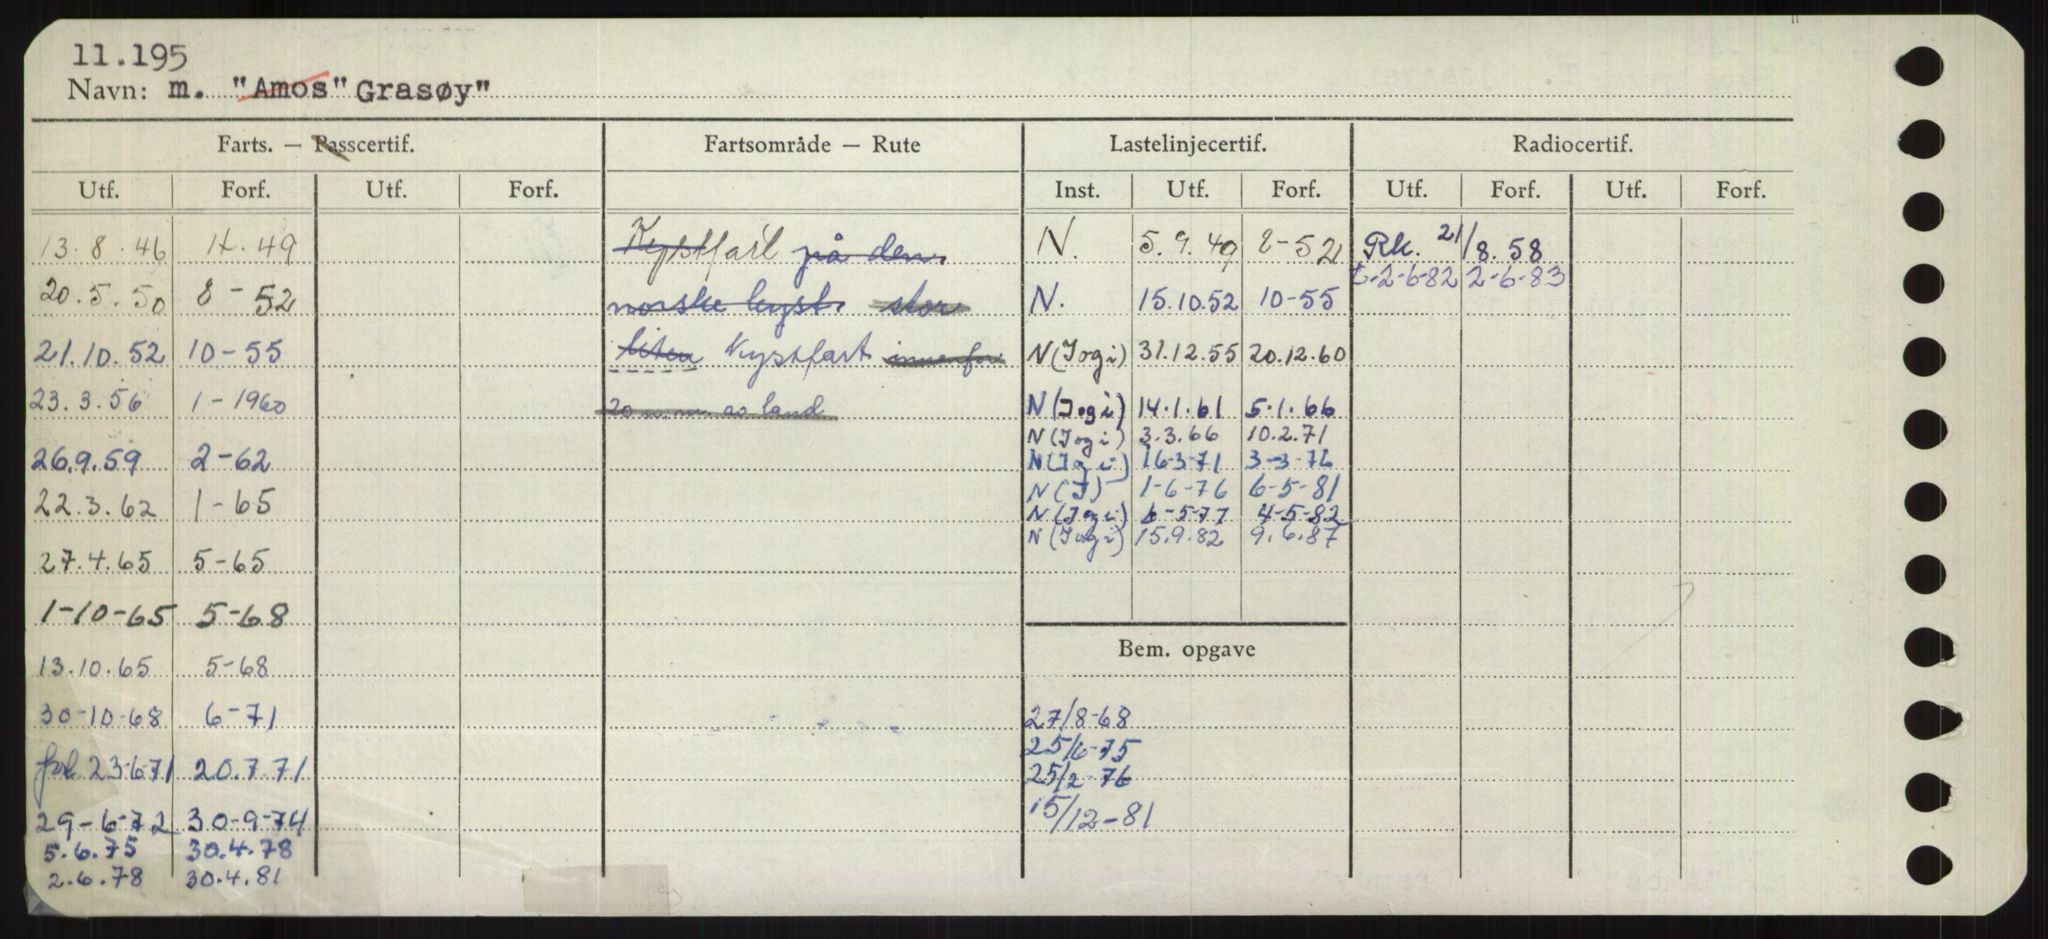 11.195
Navn: m. "Amos" Grasøy"
Farts. — Passcertif. Fartsområde — Rute Lastelinjecertif. Radiocertif.
Utf. Forf. Utf. Forf. Inst. Utf. Forf. Utf. Forf. Utf. Forf.
13.8.46 4.49 Kystfart på den N. 5.9.49 8-52 Rk. 21/8.58
2-6-82 2-6-83
20.5.50 8-52 norske kyst. stor N. 15.10.52 10-55
21.10.52 10-55 liten kystfart innenfor N (I og i) 31.12.55 20.12.60
23.3.56 1-1960 20 n.m. av land N (I og i) 14.1.61 5.1.66
N (I og i) 3.3.66 10.2.71
26.9.59 2-62 N (I og i) 16-3-71 3-3-76
22.3.62 1-65 N (I) 1-6-76 6-5-81
N (I og i) 6-5-77 4-5-82
N (I og i) 15.9.82 9.6.87
27.4.65 5-65
1-10-65 5-68
Bem. opgave
13.10.65 5-68
30-10-68 6-71 27/8-68
25/6-75
23-6-71 20.7.71 25/2-76
29-6-72 30-9-74 15/12-81
5.6.75 30.4.78
2.6.78 30.4.81